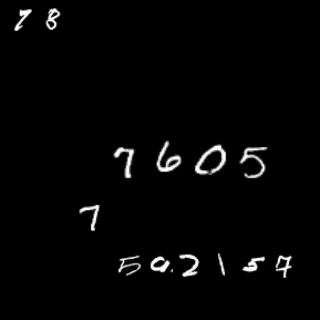 78
7605
7
502157